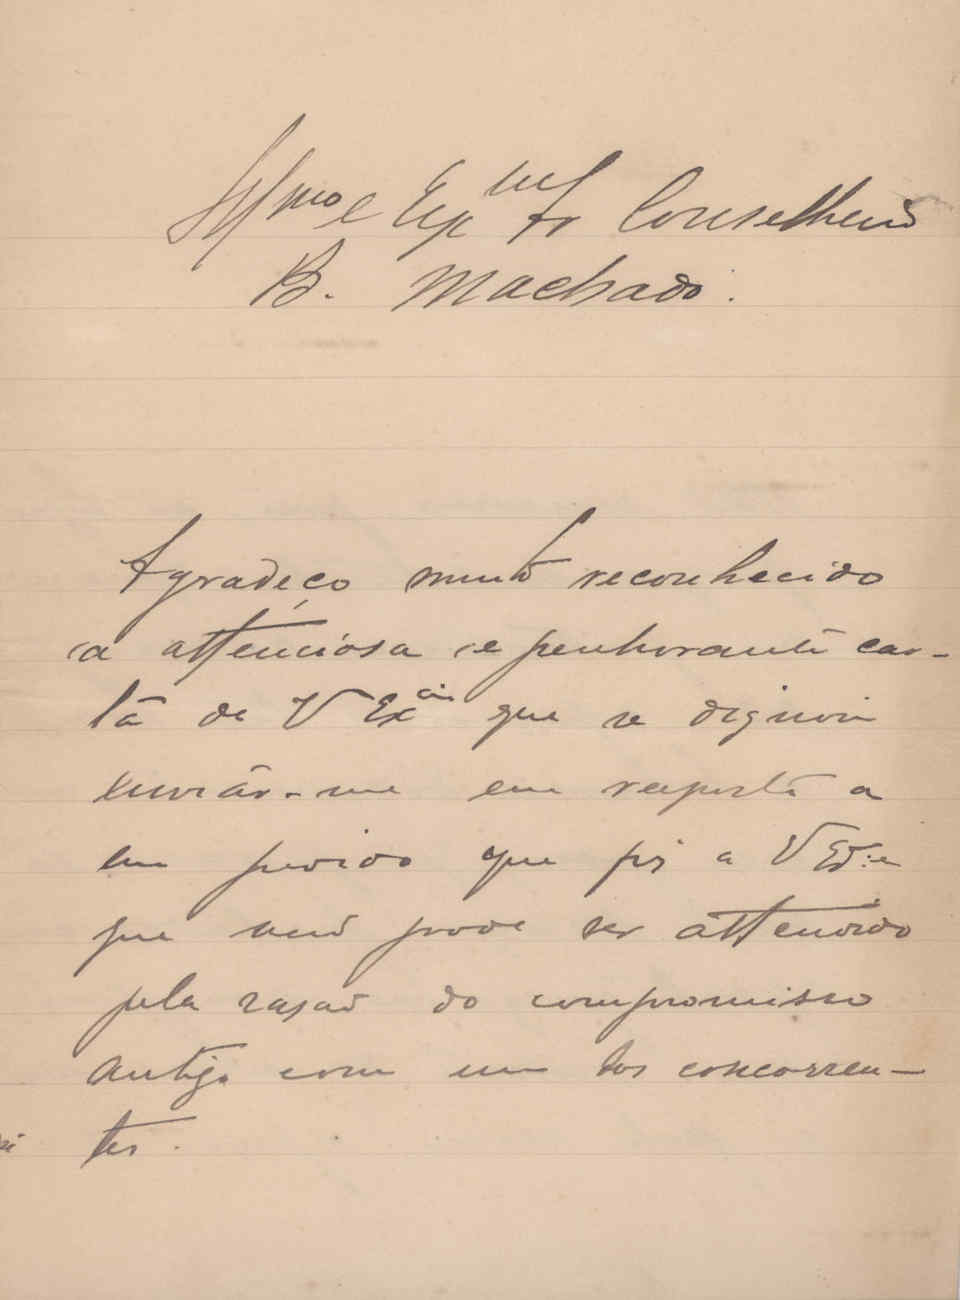 Illmo e Exmo Sr Conselheiro
B. Machado.
Agradeço muito reconhecido
a attenciosa e penhorante car-
ta de V Excia que se dignou
enviar-me em resposta a
um pedido que fiz a V Ex.a
que não pode ser attendido
pela rasão do compromisso
antigo com um dos concorren-
tes.